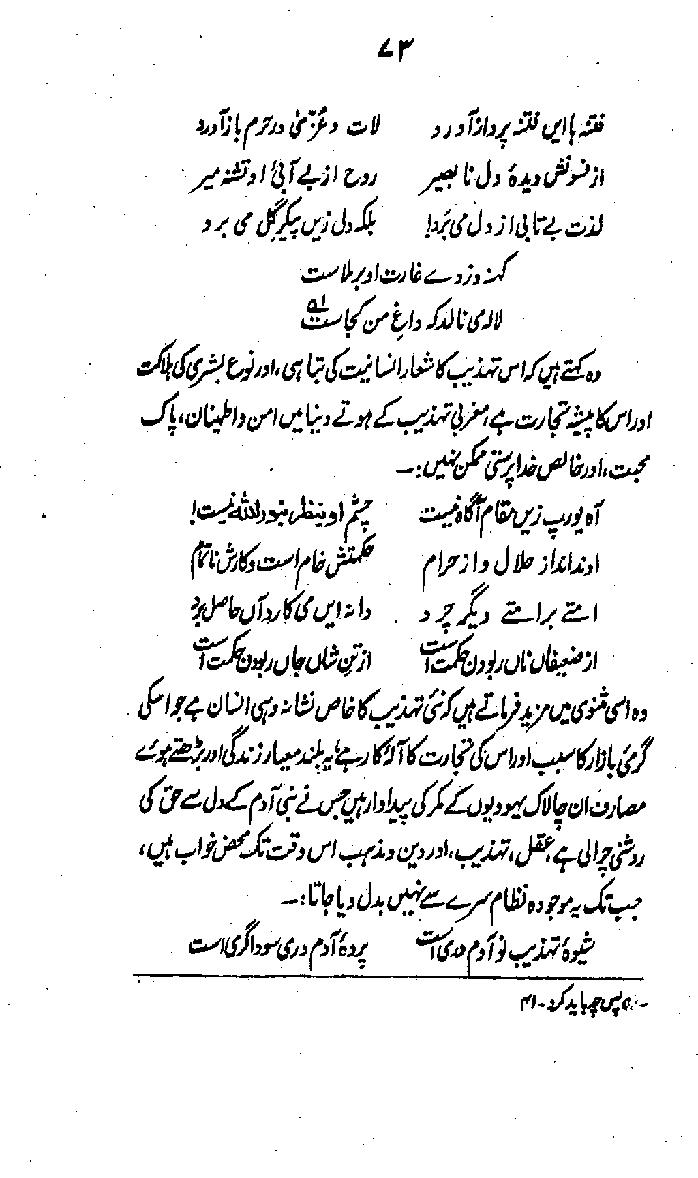 ۷۳
فتنہ ہا ایں فتنہ پرداز آورد لات و عزّیٰ در حرم باز آورد
از فسونش دیدۂ دل نا بصیر روح از بے آبیٔ او تشنہ میر
لذت بے تابی از دل می بَرد! بلکہ دل زیں پیکرِ گِل می برد
کہنہ دزدے غارت او برملاست
لالہ می نالد کہ داغِ من کجاست لہ
وہ کہتے ہیں کہ اس تہذیب کا شعار انسانیت کی تباہی، اور نوع بشری کی ہلاکت
اور اس کا پیشہ تجارت ہے، مغربی تہذیب کے ہوتے دنیا میں امن و اطمینان، پاک
محبت، اور خالص خدا پرستی ممکن نہیں:۔
آہ یورپ زیں مقام آگاہ نیست چشم او ینظر بنور اللہ نیست!
او نداند از حلال و از حرام حکمتش خام است و کارش ناتمام
امتے بر امتے دیگر چرد دانہ ایں می کارد آں حاصل برد
از ضعیفاں ناں ربودن حکمت است از تنِ شاں جاں ربودن حکمت است
وہ اسی مثنوی میں مزید فرماتے ہیں کہ نئی تہذیب کا خاص نشانہ وہی انسان ہے جو اسکی
گرمیٔ بازار کا سبب اور اس کی تجارت کا آلۂ کار ہے، یہ بلند معیار زندگی اور بڑھتے ہوئے
مصارف ان چالاک یہودیوں کے مکر کی پیداوار ہیں جس نے بنی آدم کے دل سے حق کی
روشنی چرالی ہے، عقل، تہذیب، اور دین و مذہب اس وقت تک محض خواب ہیں،
جب تک یہ موجودہ نظام سرے سے نہیں بدل دیا جاتا:۔
شیوۂ تہذیب نو آدم دری است پردۂ آدم دری سوداگری است
پس چہ باید کرد۔ ۴۱